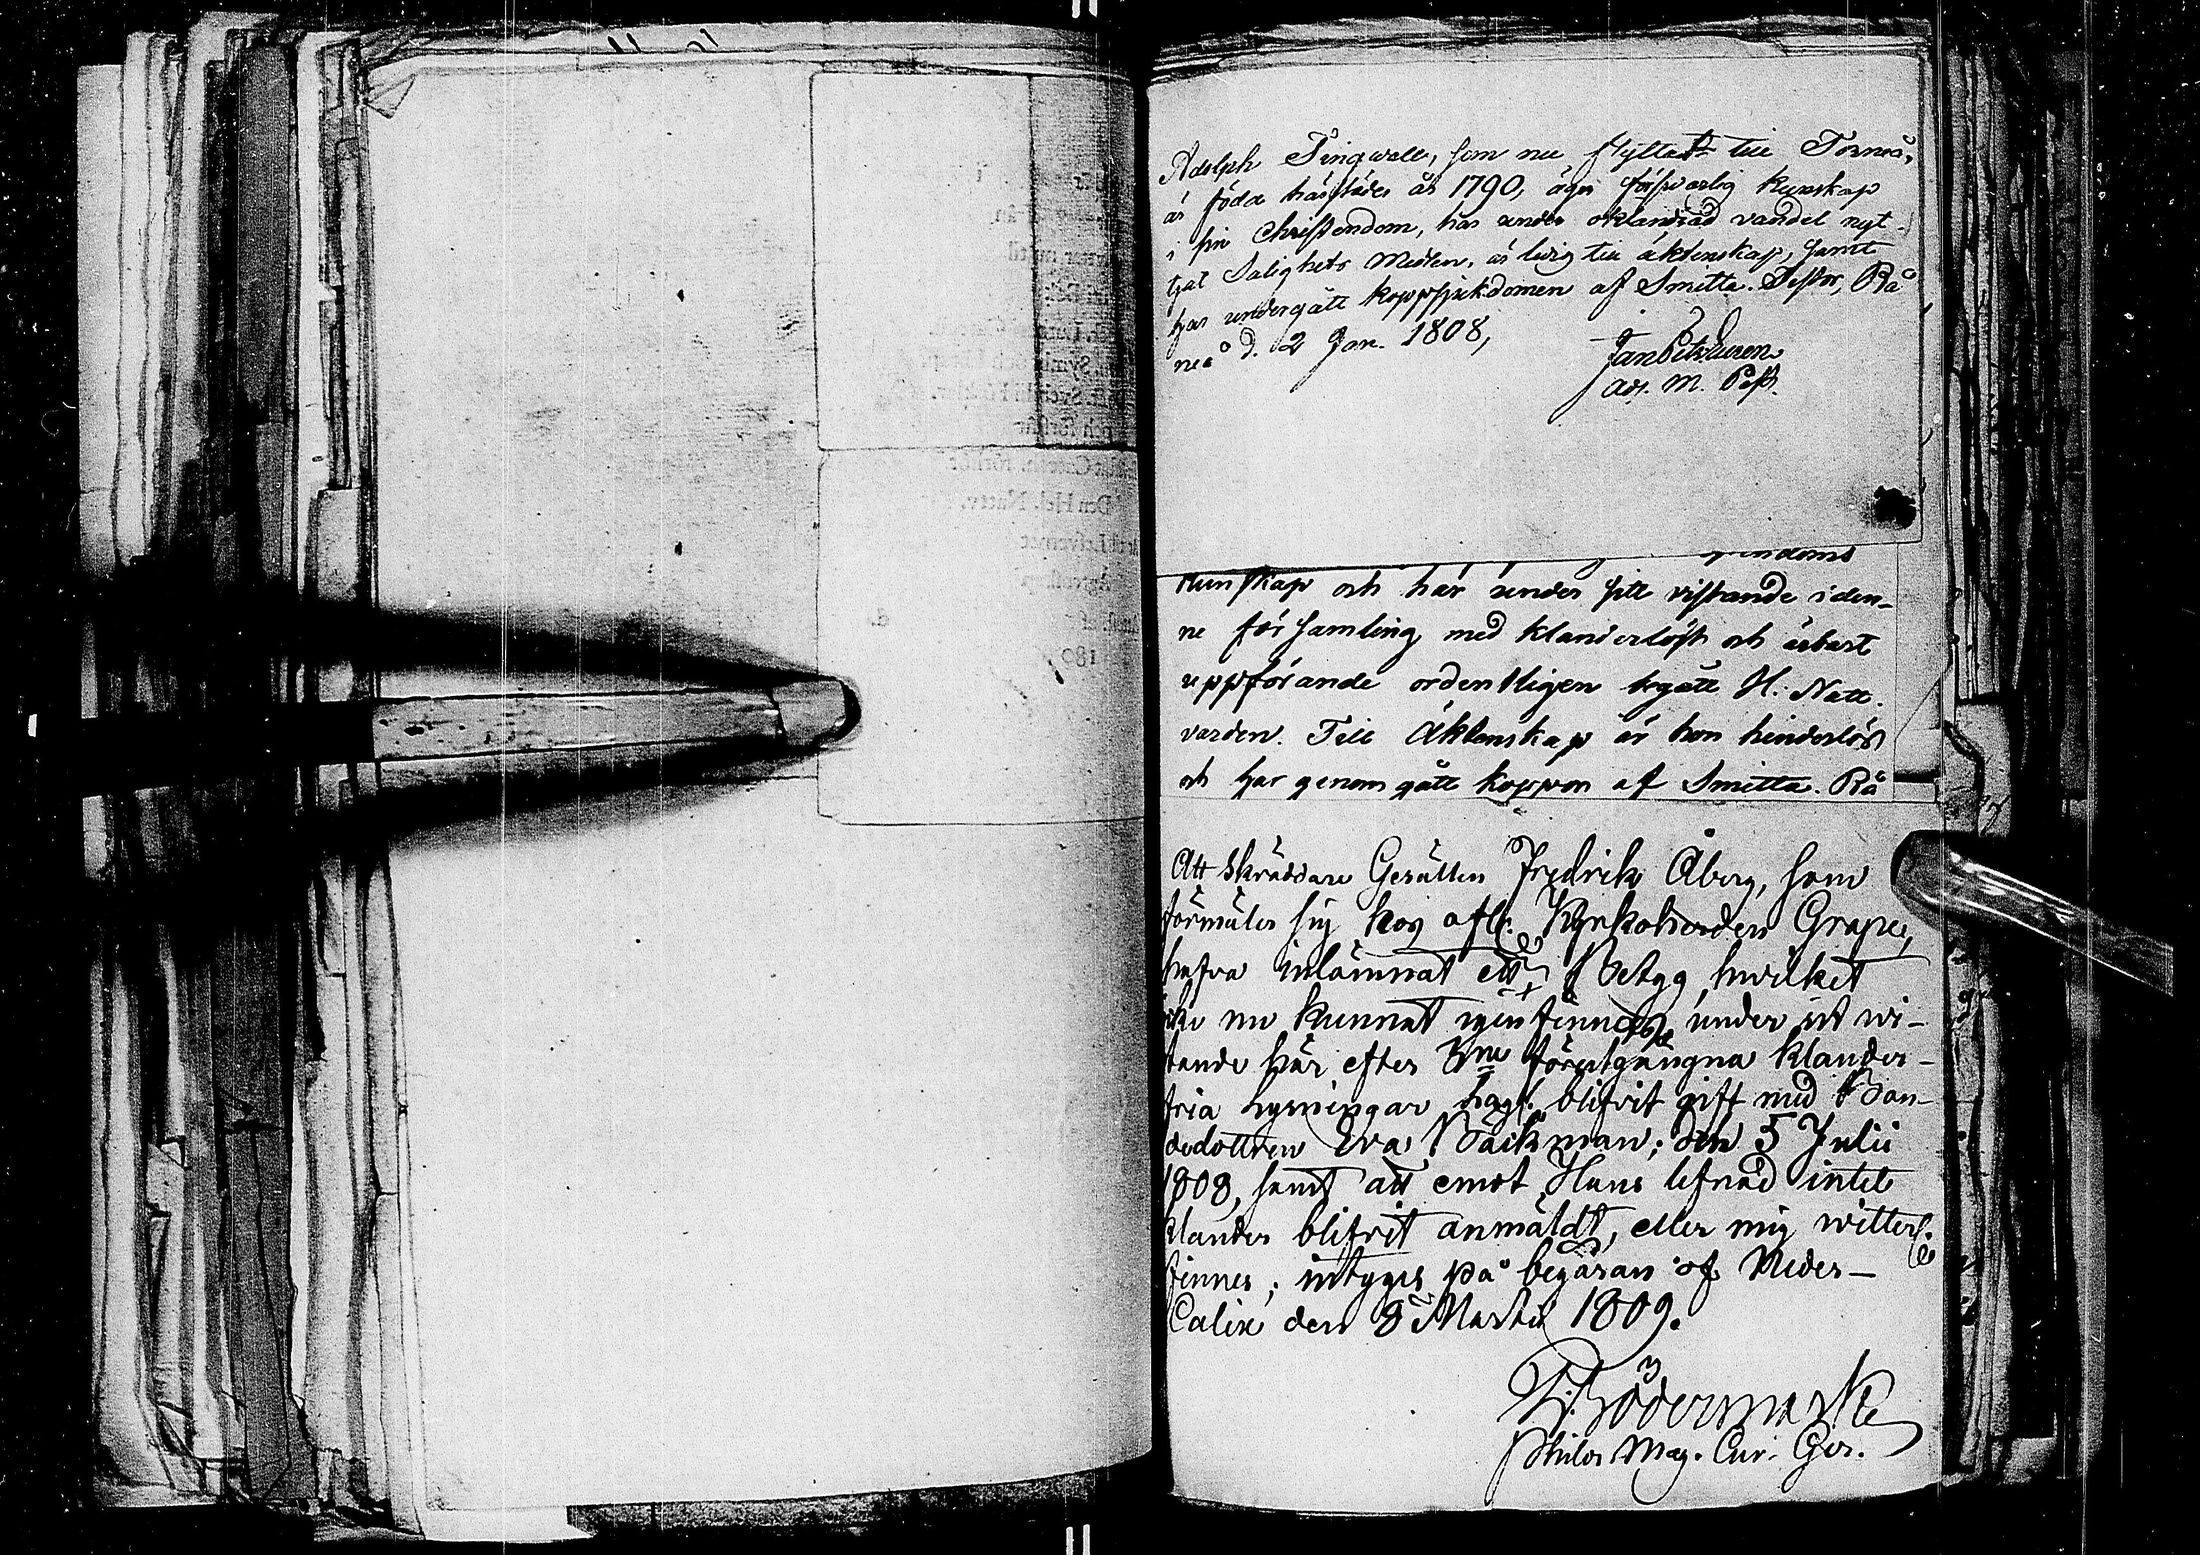 Adolph Tingwall, som nu flyttat till Torneå,
är född härstädes år 1790, äger försvarlig kunskap
i sin Christendom, har under oklandrad vandel nyt-
tjat Salighets Medlen, är ledig till äktenskap, samt
har undergått koppsjukdomen af Smitta. Testor, Rå
neå d. 2 Jan. 1808,
Adj. M. Past.
kunskap och har under sitt vistande i den-
ne församling med klanderlöst och ärbart
uppförande ordentligen begått H. Natt-
varden. Till Äktenskap är hon hinderlös
och har genomgått koppor af Smitta. Rå
Att Skräddare Gesällen Fredrik Åberg, som
förmäler sig hos afl. Kyrkoherden Grape,
hafva inlämnat ett Betyg, hvilket
icke nu kunnat igenfinnas, under sit wi-
stande här efter 3ne föreutgångna klander-
fria lysningar blifvit gift med Bon-
dedottren Eva Bäckman; den 5 Julii
1808, samt att emot Hans lefnad intet
klander blifvit anmäldt, eller mig witterl.
finnes; intygas på begäran af Neder-
Calix den 8 Martii 1809.
Södermark
Philos Mag. Cur. Ger.